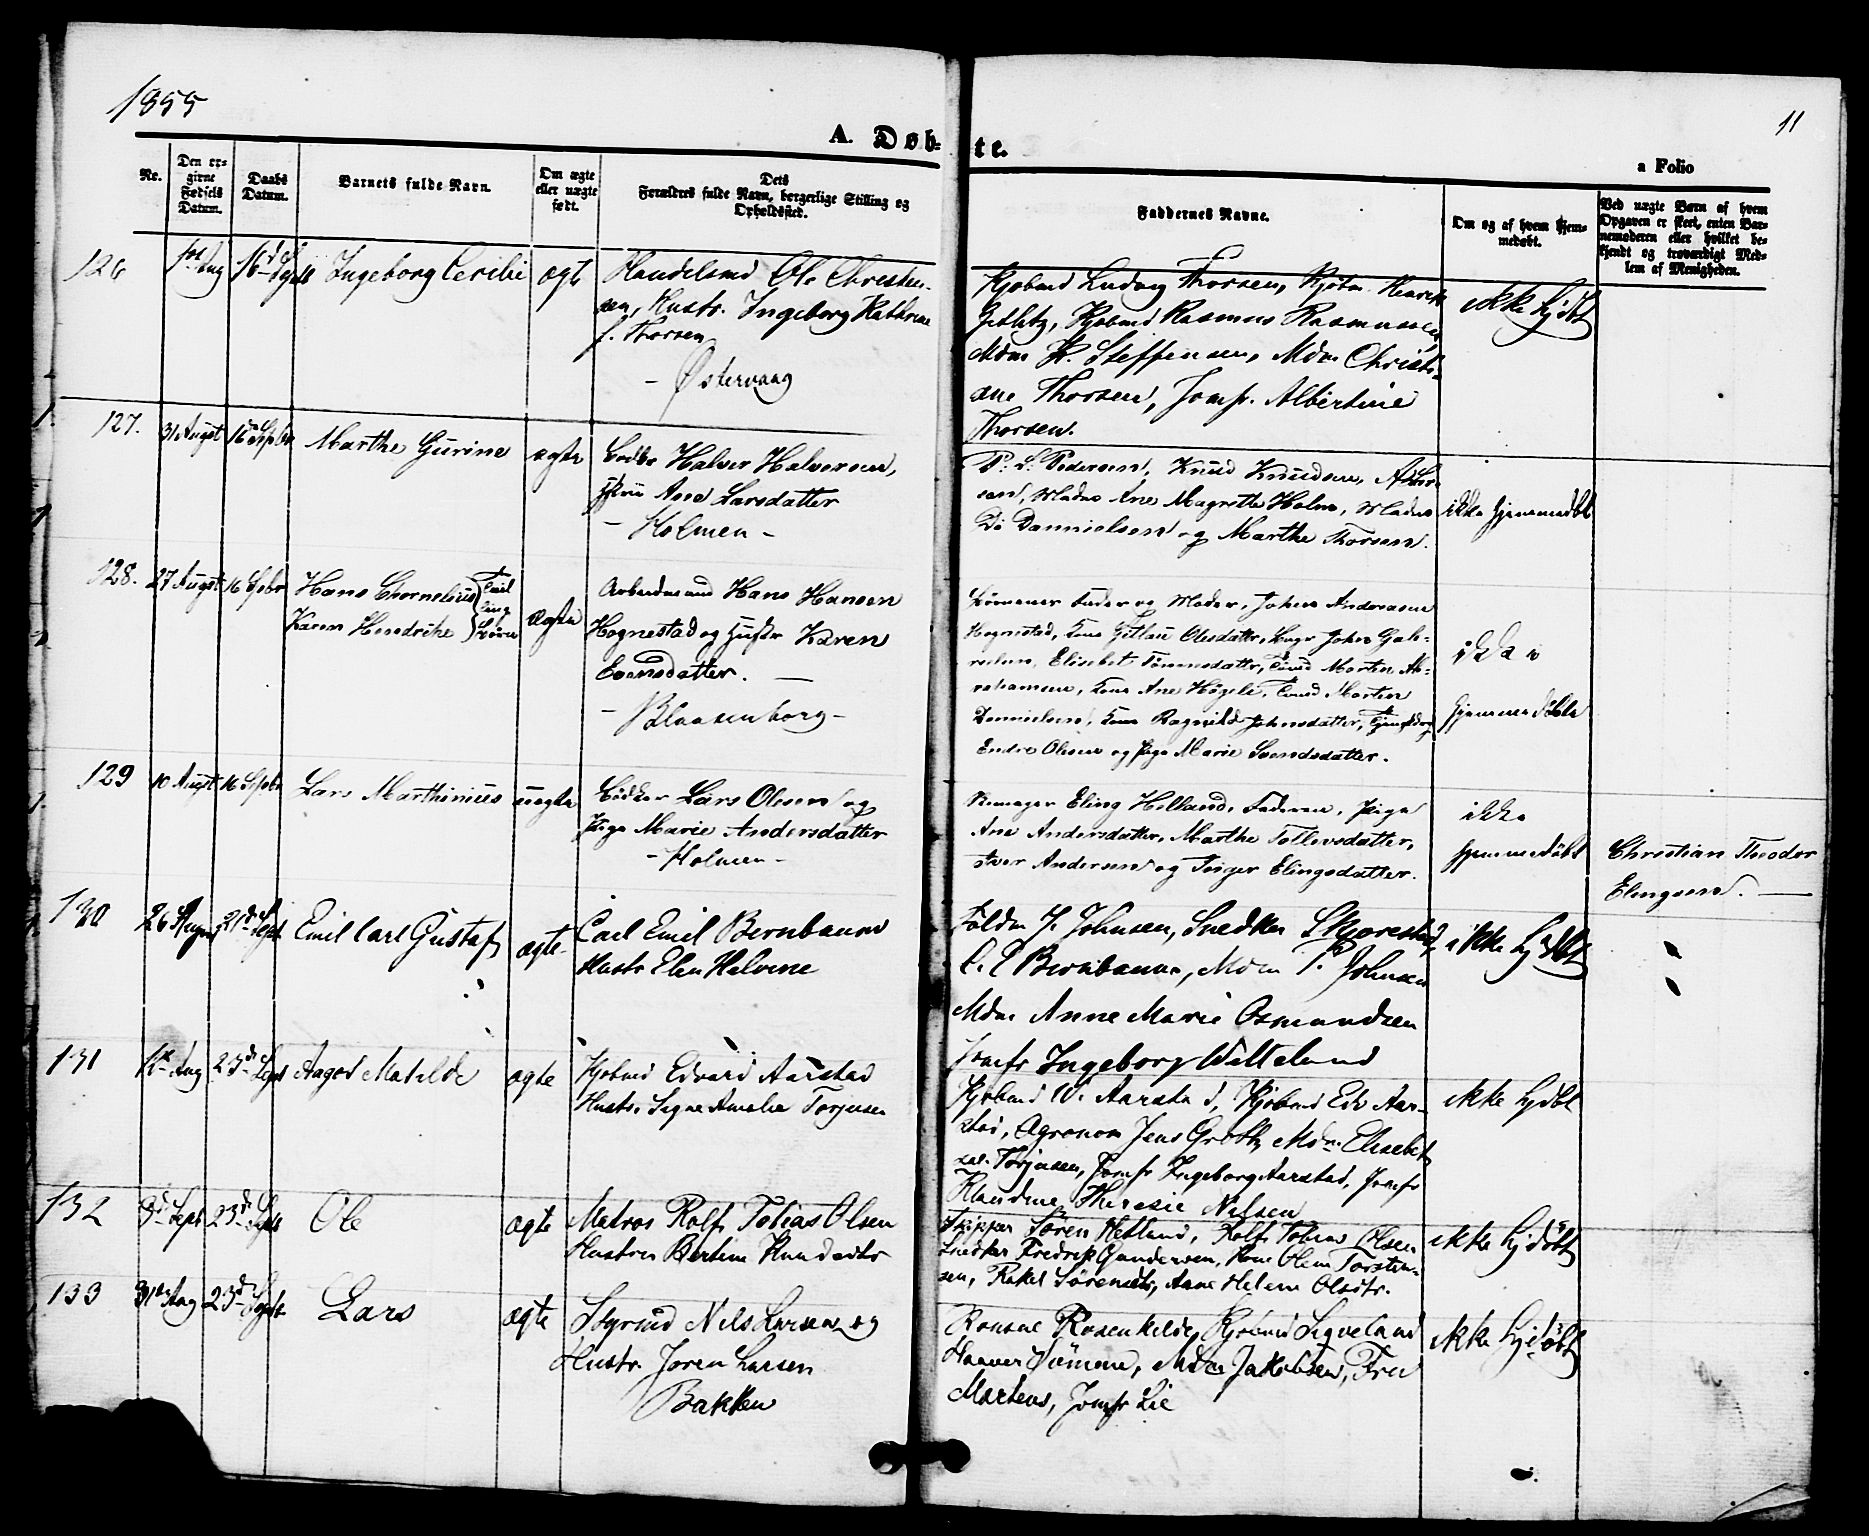 1855
11
A. Døb-
te.
a Folio
No.
Den er-
girne
Fødsels
Datum.
Daabs
Datum.
Barnets fulde Navn.
Om ægte
eller uægte
født.
Dets
Forældres fulde Navn, borgerlige Stilling og
Opholdssted.
Faddernes Navne.
Om og af hvem hjem-
medøbt.
Ved uægte Børn af hvem
Opgaven er skeet, enten Bar-
nemoderen eller hvilket be-
kjendt og troværdigt Med-
lem af Menigheden.
126
Aug
16d Sept
Ingeborg Cecilie
ægte
Handelsmd Ole Christen-
sen, Hustr. Ingeborg Kathrine
f. Thorsen
- Østervaag
Kjøbmd Ludvig Thorsen, Kjøbm Henrik
Kjøbmd Rasmus Rasmussen
Mdm H. Steffensen, Mdm Christi-
ane Thorsen, Jomfr. Albertine
Thorsen.
ikke hjdbt
127.
31 August
16 Septbr
Marthe Gurine
ægte
Halvor Halvorsen,
Ane Larsdatter
- Holmen -
P. L. Pedersen, Knud Knudsen, A Lar-
sen, Madm Ane Magrethe Holm, Madm
Danielsen og Marthe Thorsen.
ikke hjemmedbt
128.
27 August
16 Septbr
Hans Chornelius
Karen Hendrikke
Tvil
ling
Børn
ægte
Arbeidsmand Hans Hansen
Hognestad og Hustr Karen
Evensdatter. —
- Blaasenborg -
Børnenes Fader og Moder, Johan Andreasen
Hognestad, Kone Olesdatter, John Gab-
rielsen, Elisebet Tønnesdatter, Martin Ab-
rahamsen, Kone Ane Martin
Danielsen, Kone Ragnild Johnsdatter,
Endre Olesen og Pige Marie Svendsdatter.
ikke
hjemmedøbte
129
10 August
16 Septbr
Lars Marthinius
uægte
Bødker Lars Olsen og
Pige Marie Andersdatter
- Holmen -
Eling Helland, Faderen, Pige
Ane Andersdatter, Marthe Tollevsdatter,
Iver Andersen og Inger Elingsdatter.
ikke
hjemmedøbt
Christian Theodor
Elingsen. —
130
26 August
21d Sept
Emil Carl Gustaf
ægte
Carl Emil Bernbaum
Hustr Elen Helvine
J. Johnsen, Snedker Skjorestad,
C. E Bernbaum, Mdm P. Johnsen
Mdm Anne Marie Osmundsen
Jomfr Ingeborg
ikke hjdbt
131
Aug
23d Sept
Aagot Matilde
ægte
Kjøbmd Edvard Aarstad
Hustr. Signe Amalie Torjusen
Kjøbmd W. Aarstad, Kjøbmd Edv Aar-
stad, Agronom Jens Grotle, Mdm Elisebet
Torjusen, Jomfr Ingeborg Aarstad, Jomfr
Klaudine Theresie Nilsen
ikke hjdbt
132
3d Sept
23d Sept
Ole
ægte
Matros Rolf Tobias Olsen
Hustru Bertine Knudsdtr
Skipper Søren Hetland, Rolf Tobias Olsen
Snedker Fredrik Gundersen, Kone Olene Torsten-
sen, Rakel Sørensdtr, Anne Helene Olsdtr.
ikke hjdøbt
133
31te Aug
23d Sept
Lars
ægte
Styrmd Nils Larsen og
Hustr. Joren Larsen
Bakken
Konsul Rosenkilde, Kjøbmd Sigveland
Mdm Jakobsen, Fru
Martens, Jomfr Lie
ikke hjdøbt